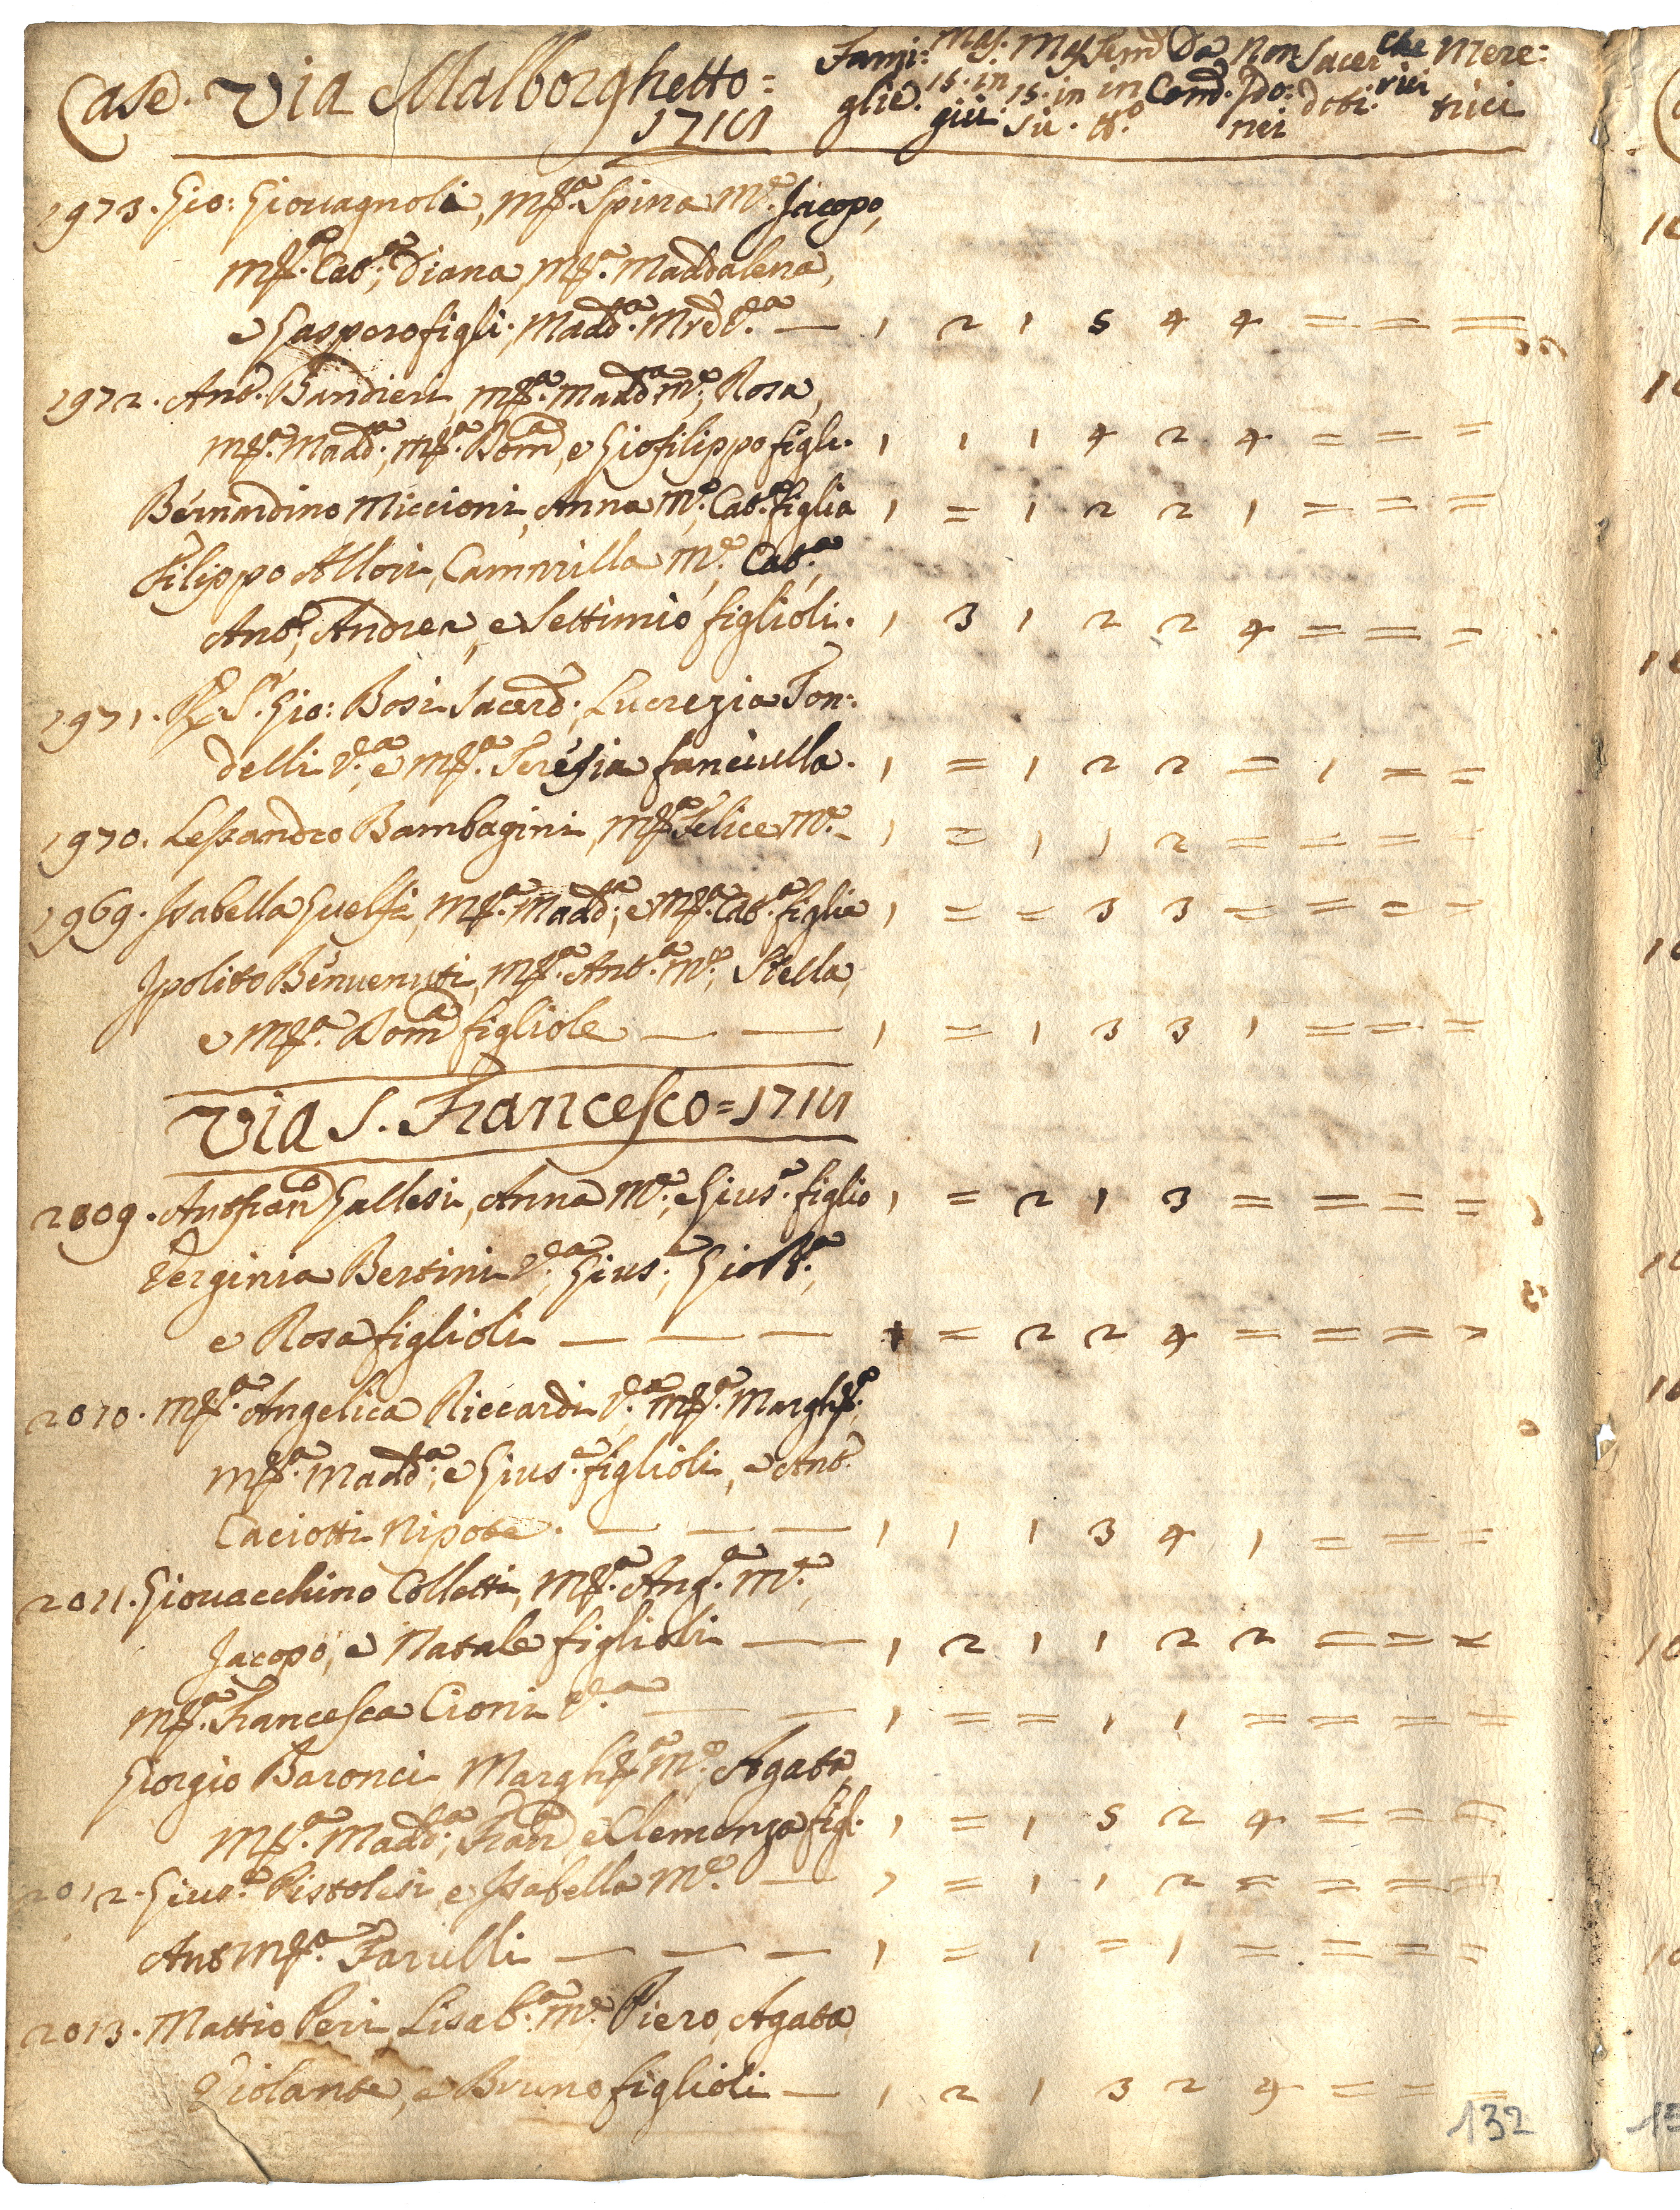 Case. Via Malborghetto = Fami: Mas. Mas. Fem. Da Non Sacer Che Mere:
glie. 15. in 15. in in Com. Ido: doti. rici trici
1711 giù. sù. tt.o nei
1973. Gio: Giouagnoli, M.ª Spina M.e Jacopo,
M.ª Cat.ª, Diana, M.ª Maddalena,
e Gaspero figli. Madd.ª Mre V.ª — 1 2 1 5 4 4 = = =
1972. Ant.o Bandieri, M.ª Madd.ª M.e, Rosa,
M.ª Madd.ª, M.ª Dom.ª, e Giofilippo figli. 1 1 1 4 2 4 = = =
Bernardino Miccioni, Anna M.e, Cat.ª figlia 1 = 1 2 2 1 = = =
Filippo Allori, Cammilla M.e, Cat.ª,
Ant.o, Andrea, e Settimio figlioli. 1 3 1 2 2 4 = = =
1971. R. S.r Gio: Bosi Sacerd.; Lucrezia Ton:
delli V.ª, e M.ª Teresia fanciulla. 1 = 1 2 2 = 1 = =
1970. Lessandro Bambagini, M.ª Felice M.e — 1 = 1 1 2 = = = =
1969. Isabella Guelfi, M.ª Madd.ª, e M.ª Cat.ª figlie 1 = = 3 3 = = = =
Ipolito Benuenuti, M.ª Ant.ª M.e, Stella,
e M.ª Dom.ª figliole — — 1 = 1 3 3 1 = = =
Via S. Francesco = 1711
2009. Antfran.o Gallesi, Anna M.e, e Gius.e figlio 1 = 2 1 3 = = = =
Verginia Bertini V.ª, Gius.e, Giobt.ª,
e Rosa figlioli — — — 1 = 2 2 4 = = = =
2010. M.ª Angelica Riccardi V.ª, M.ª Margh.ª,
M.ª Madd.ª, e Gius.e figlioli, e Ant.o
Caciotti Nipote. — — — 1 1 1 3 4 1 = = =
2011. Giouacchino Colletti, M.ª Ang.ª M.e,
Jacopo, e Natale figlioli — 1 2 1 1 2 2 = = =
M.ª Francesca Cioni V.ª — — 1 = = 1 1 = = = =
Giorgio Baronci Margh.ª M.e, Agata,
M.ª Madd.ª, Fran.ª e Clemenza figl. 1 = 1 5 2 4 = = =
2012. Gius.e Pistolesi, e Isabella M.e — 1 = 1 1 2 = = = =
Ant M.ª Farulli — — — 1 = 1 = 1 = = = =
2013. Mattio Peri, Lisab.ª M.e Piero, Agata,
Violante, e Bruno figlioli — 1 2 1 3 2 4 = = =
132